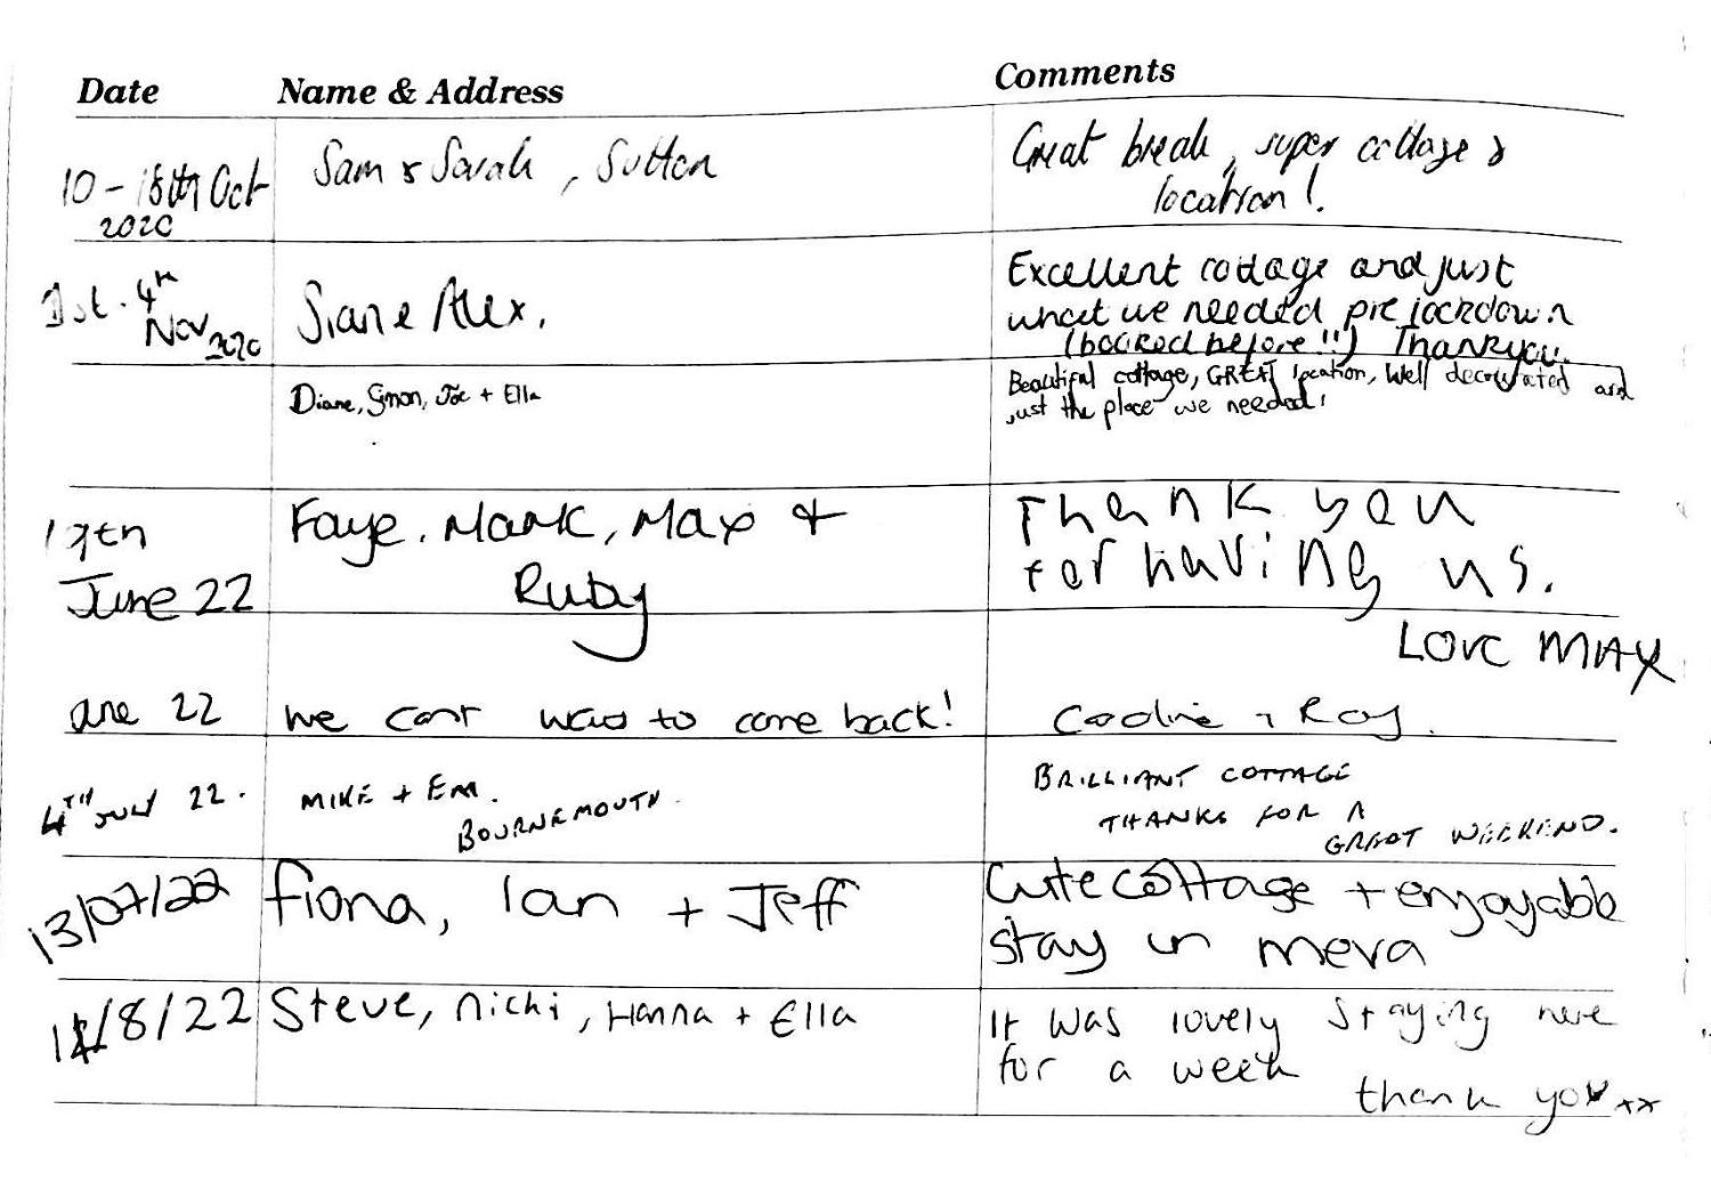 Date Name & Address Comments
10 - 18th Oct 2020
Sam & Sarah, Sutton
Great break, super cottage &
location!
1st - 4th
Nov 2020
Sian & Alex.
Excellent cottage and just
what we needed pre lockdown
(booked before!!) Thankyou.
Diane, Simon, Joe + Ella
Beautiful cottage, GREAT location, Well decorated and
just the place we needed!
June 22
Faye, Mark, Max +
Ruby
Thank you
for having us.
Love MAX
une 22
we cant wait to come back!
+ Roy.
4TH JULY 22.
MIKE + EM.
BOURNEMOUTH.
BRILLIANT COTTAGE
THANKS FOR A
GREAT WEEKEND.
13/07/22
fiona, Ian + Jeff
Cute cottage + enjoyable
stay in meva
/8/22
Steve, Nicki, Hanna + Ella
It was lovely staying here
for a week
thank you xx